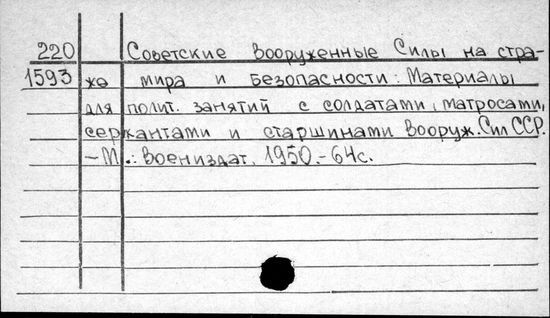 220 Советские Вооруженные Силы на стра-
1593 же мира и безопасности: Материалы
для полит. занятий с солдатами, матросами,
сержантами и старшинами Вооруж. Сил ССР.
– М.: Воениздат, 1950.-64с.